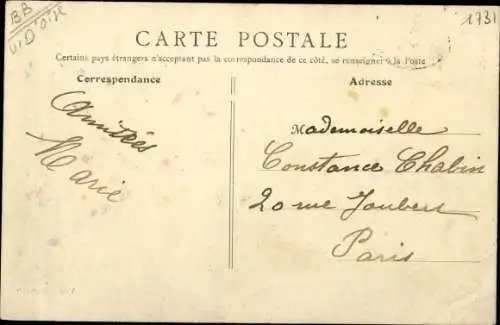 BB
V.D'OISE
1731
CARTE POSTALE
Certains pays étrangers n'acceptant pas la correspondance de ce côté, se renseigner à la Poste
Correspondance
Adresse
Amitiés
Marie
Mademoiselle
Constance Chabin
20 rue Joubert
Paris